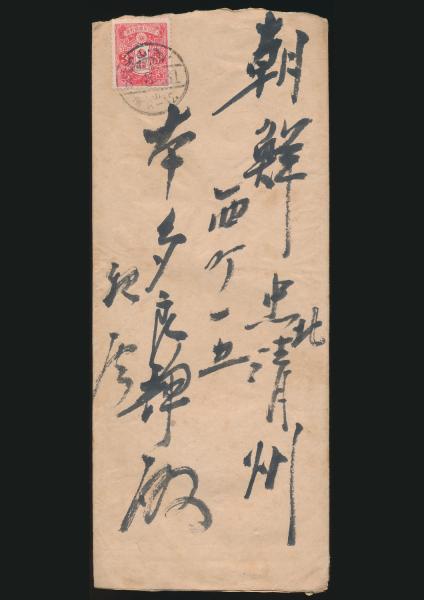 朝鮮忠北清州
西町一五
本多良静殿
親展